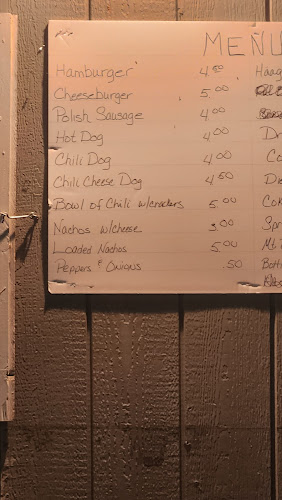 MENU
Hamburger 4.50
Cheeseburger 5.00
Polish Sausage 4.00
Hot Dog 4.00
Chili Dog 4.00
Chili Cheese Dog 4.50
Bowl of Chili w/crackers 5.00
Nachos w/Cheese 3.00
Loaded Nachos 5.00
Peppers & Onions .50
Haag
Dr
Co
Die
Cok
Spr
Mt.
Bott